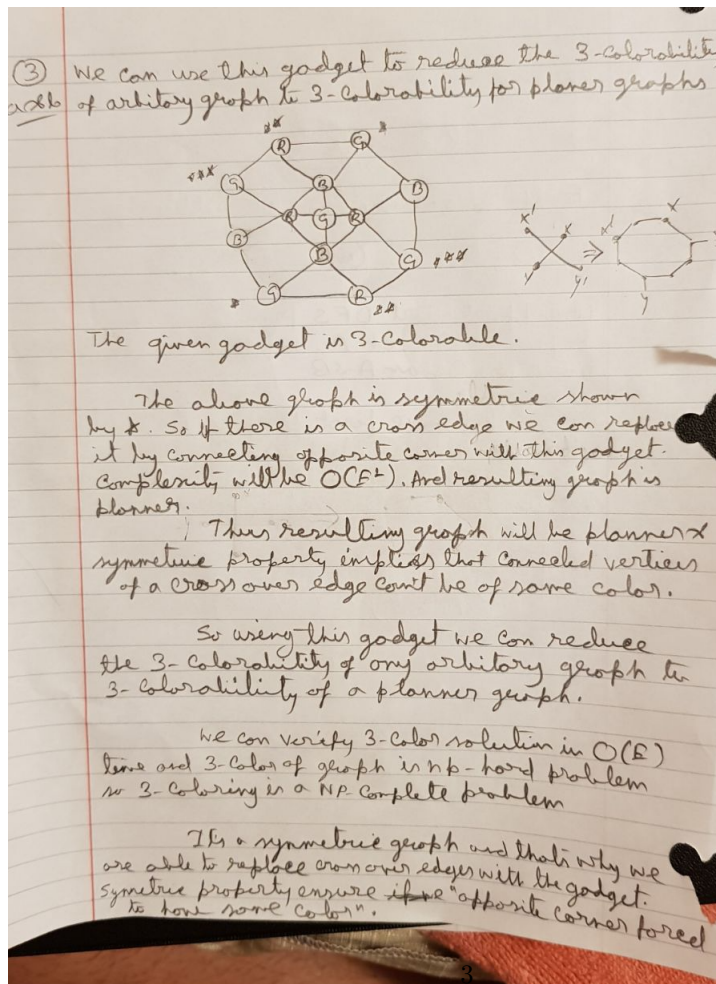 ③ We can use this gadget to reduce the 3-colorability
a&b of arbitary graph to 3-colorability for planer graphs
** *
R G
*** G B B
R G R
B B G ***
* G R **
x' x x' x
y y' y
⇒
The given gadget is 3-colorable.
The above graph is symmetric shown
by *. So if there is a cross edge we can replace
it by connecting opposite corner with this gadget.
Complexity will be O(E²). And resulting graph is
planner.
Thus resulting graph will be planner &
symmetric property implies that connected vertices
of a cross over edge can't be of same color.
So using this gadget we can reduce
the 3-colorability of any arbitary graph to
3-colorability of a planner graph.
We can verify 3-color solution in O(E)
time and 3-color of graph is np-hard problem
so 3-coloring is a NP-complete problem
It's a symmetric graph and that's why we
are able to replace cross over edges with the gadget.
Symetric property ensure "opposite corner forced
to have same color".
3